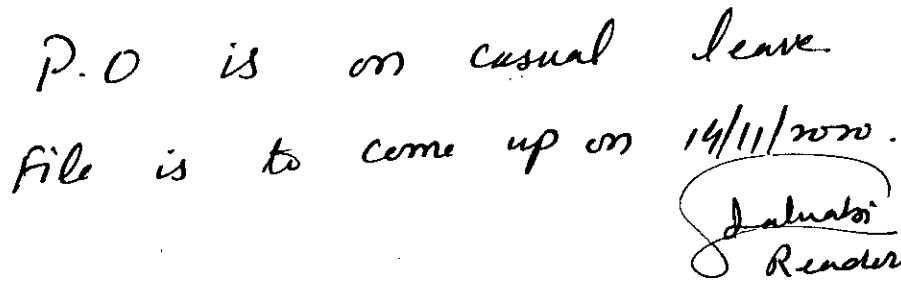 P.O is on casual leave
File is to come up on 14/11/2020.
Reader